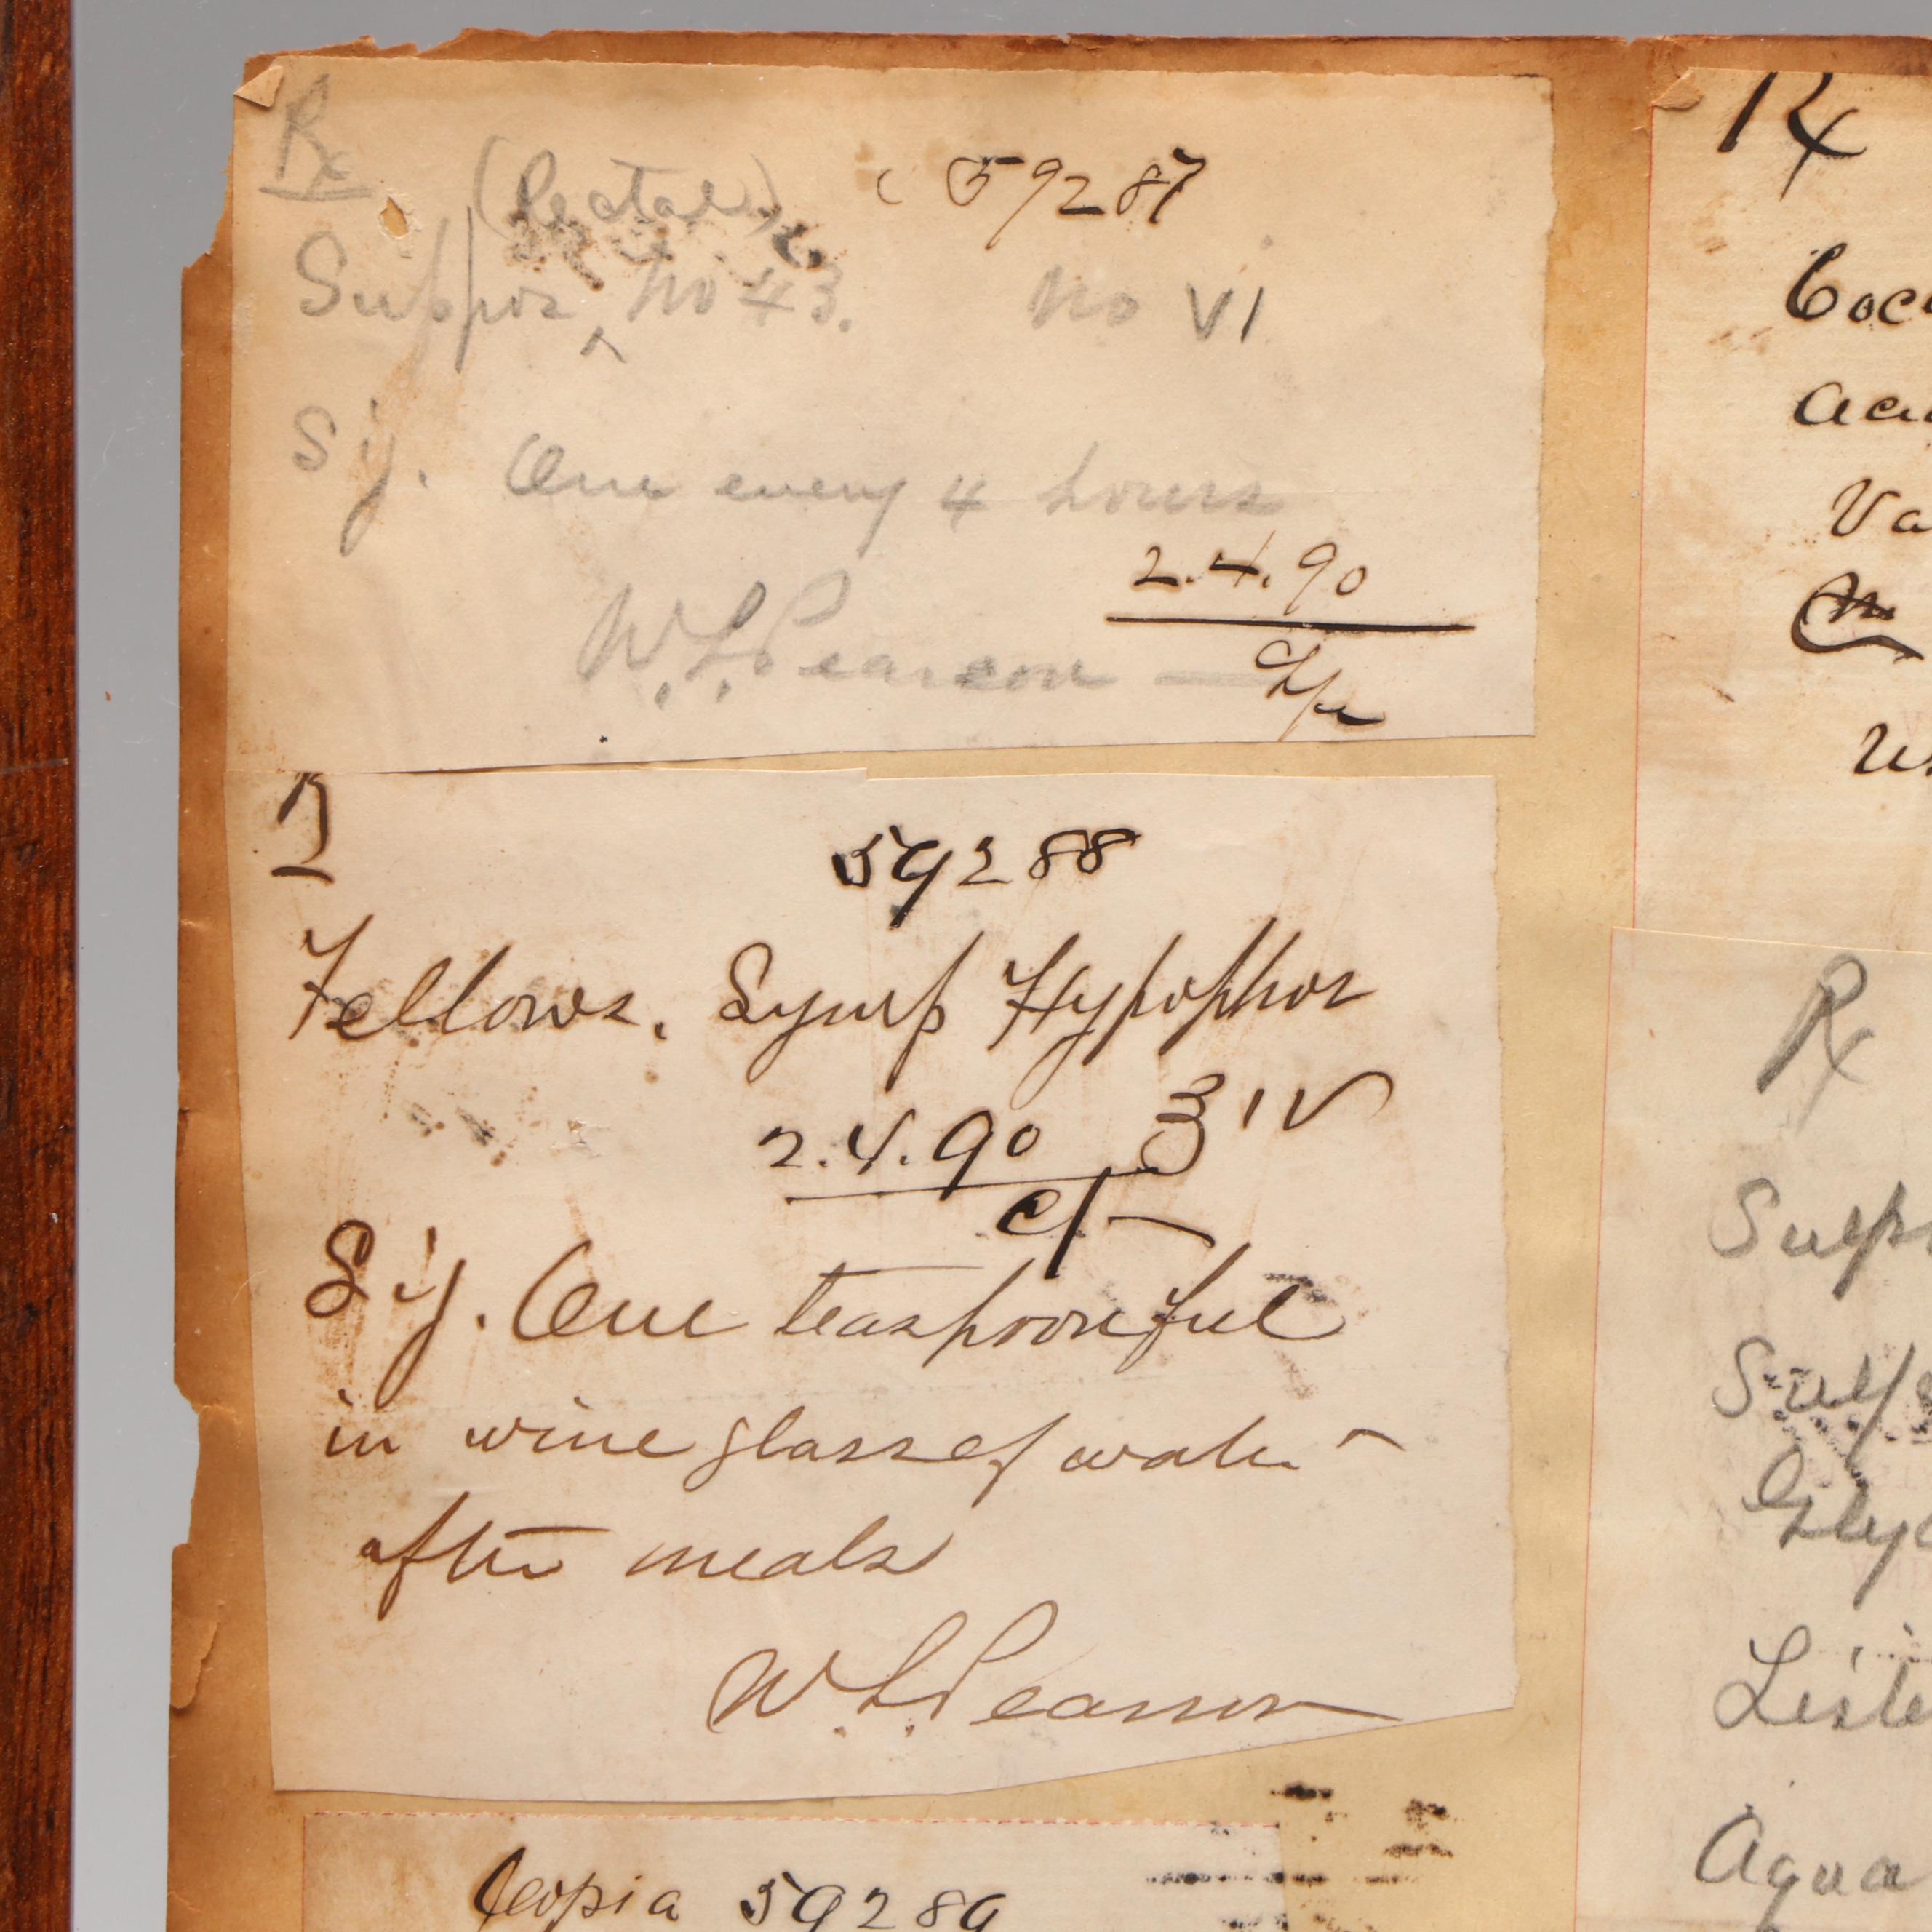 Rx
(Rectal) 59287
Suppos ^ No 43. No VI
Sig. One every 4 hours
2.4.90
W. L. Pearson
℞
59288
Fellows. Syrup Hypophos
℥ IV
2.4.90
Sig. One teaspoonful
in wineglassof water
after meals
W. L. Pearson
Copia 59289
Rx
Coc
Va
Us
Rx
Sulp
Glyc
Liste
Aqua